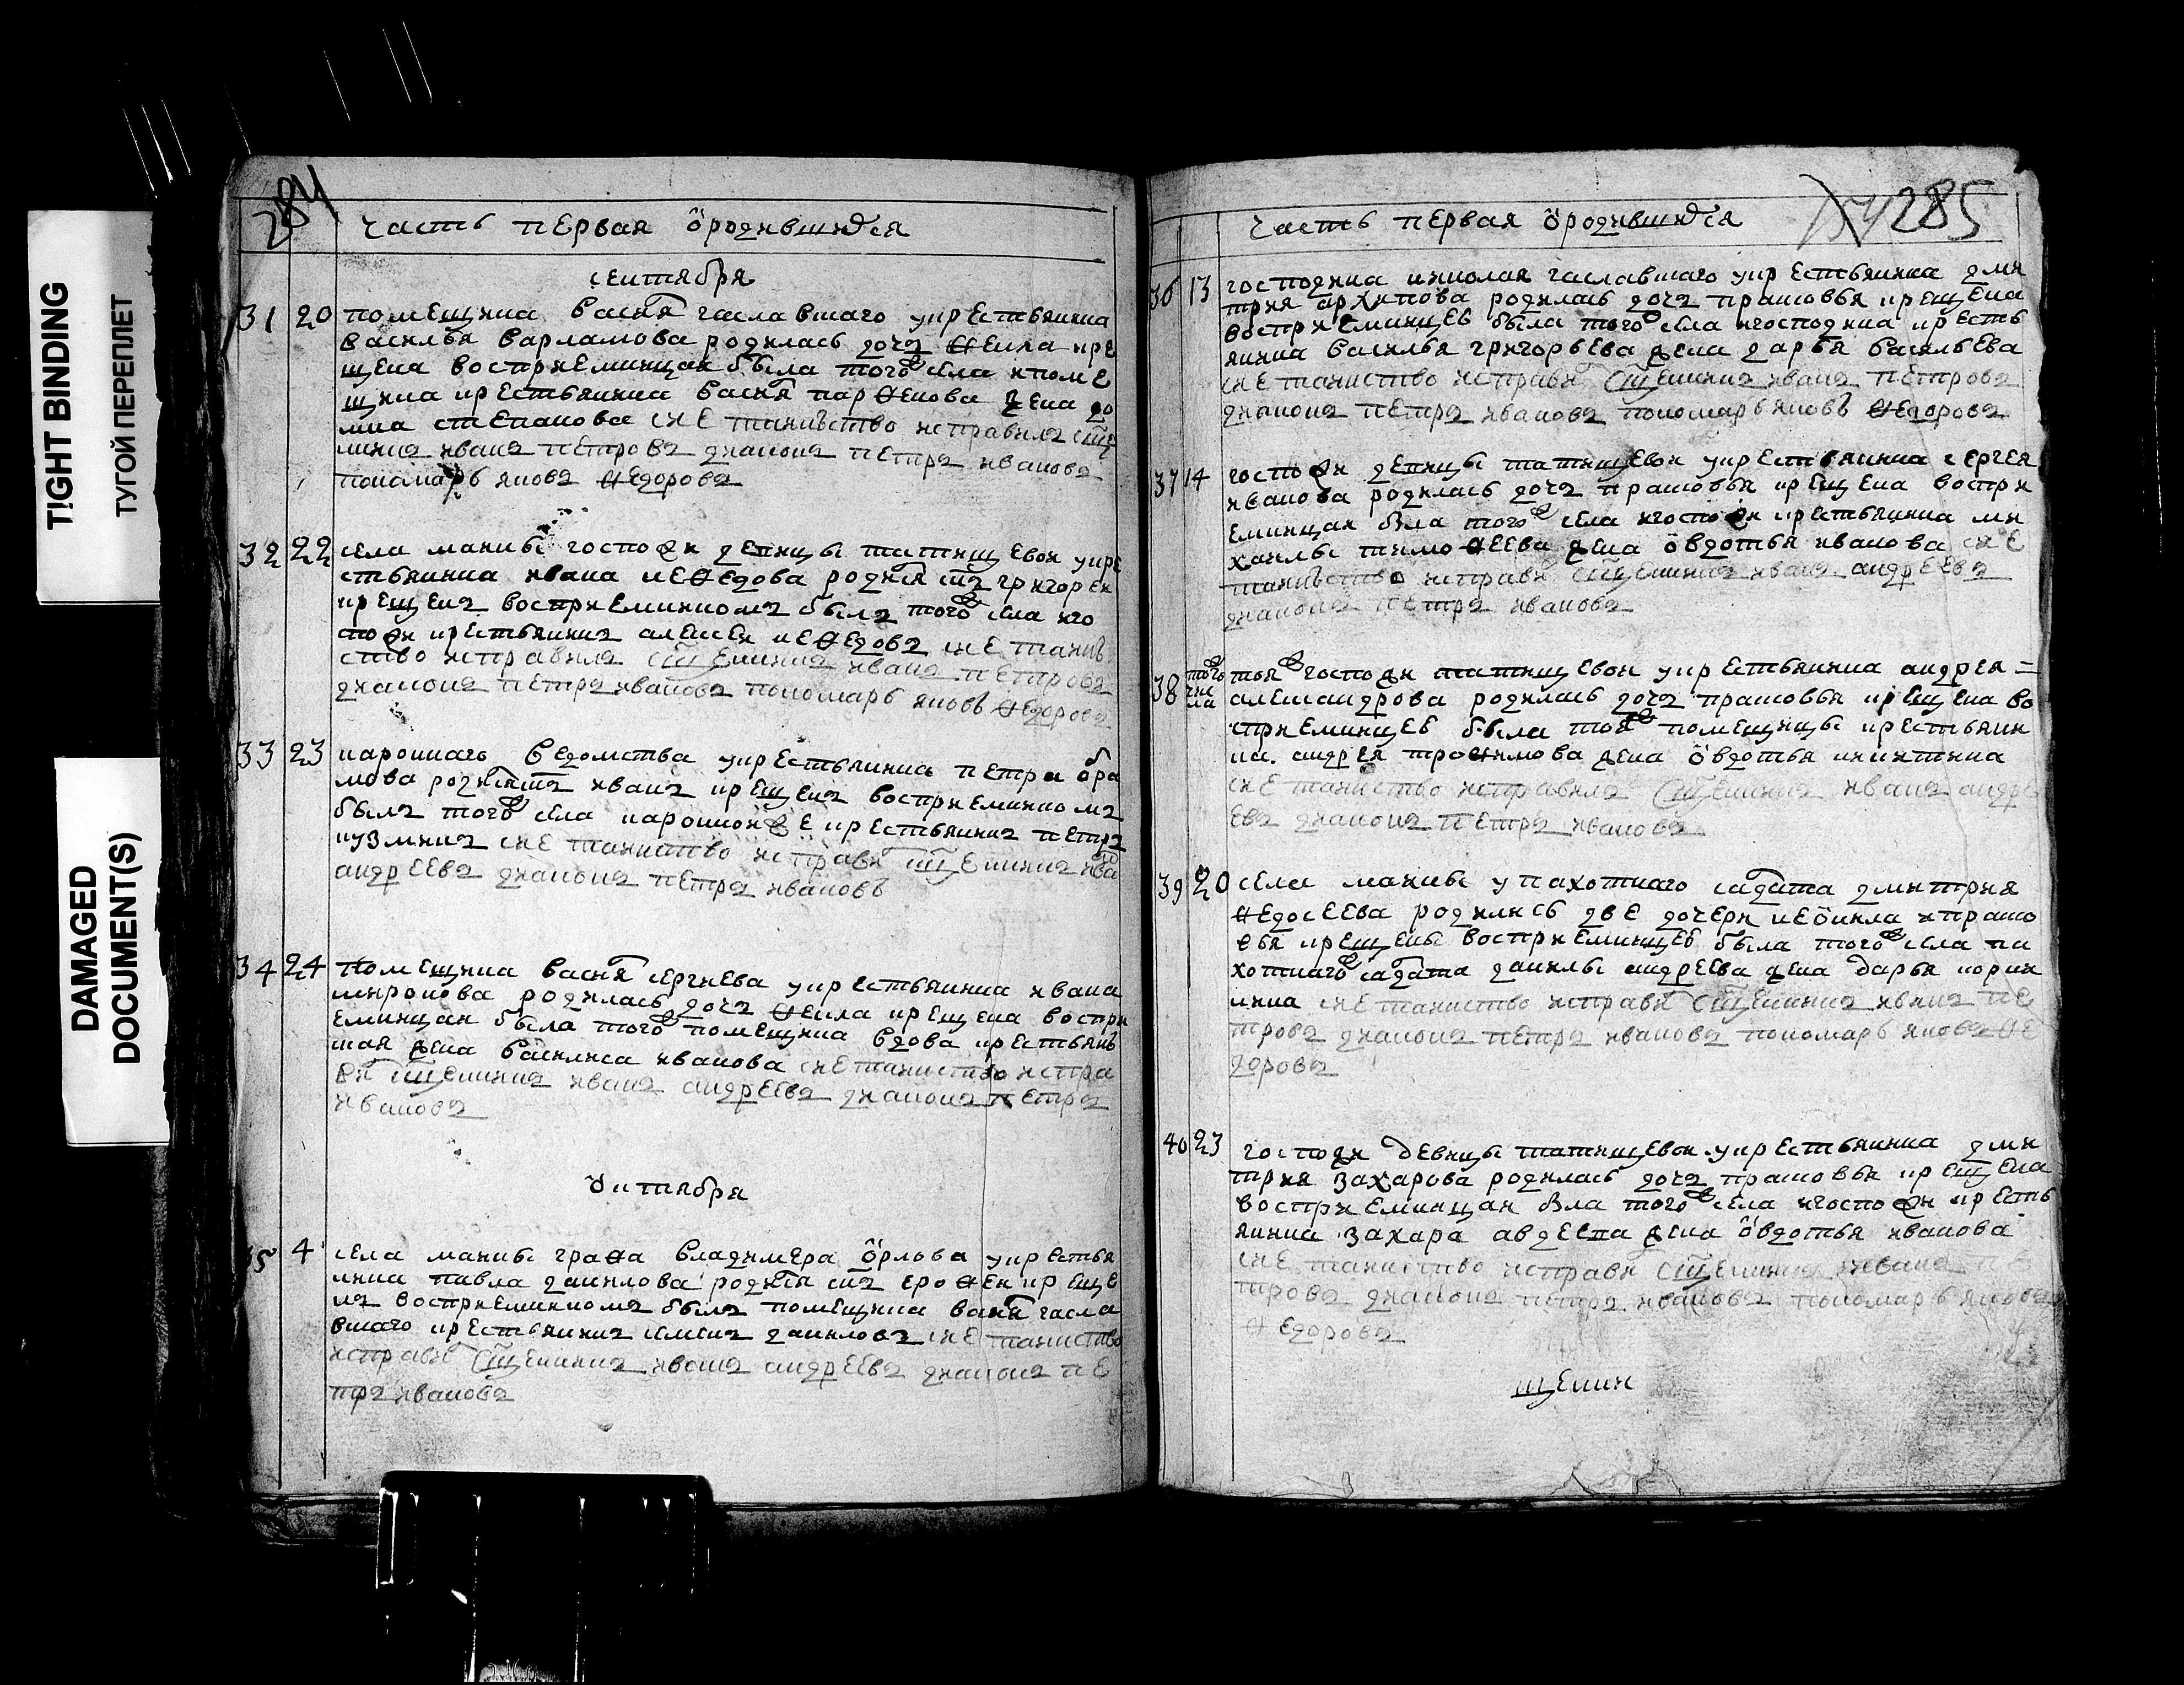 TIGHT BINDING
ТУГОЙ ПЕРЕПЛЕТ
DAMAGED
DOCUMENT(S)
284
часть первая о родившихся
сентября
31 20 помещика Василя чаславшаго у крестьянина
василья варламова родилась дочь ѳекла кре
щена восприемницаи была того ж села и поме
щика крестьянина василя парѳенова жена до
мна степанова сие таинъство исправилъ сще
никъ иванъ петровъ дьяконъ петръ ивановъ
пономарь яковъ ѳедоровъ
32 22 села макибы госпожи девицы татищевои у кре
стьянина ивана меѳедова родился снъ григореи
крещенъ восприемникомъ былъ того ж села и го
спожи крестьянинъ алексеи меѳедовъ сие таинъ
ство исправилъ сщенникъ иванъ петровъ
дьяконъ петръ ивановъ пономарь яковъ ѳедоровъ
33 23 каронаго ведомства у крестьянина петра обра
мова родился снъ иванъ крещенъ восприемникомъ
былъ того ж села крестьянинъ петръ
кузминъ сие таинство исправи сщенникъ иванъ
андреевъ дьяконъ петръ ивановъ
34 24 помещика василя сергиева у крестьянина ивана
миронова родилась дочь ѳекла крещена воспри
емницаи была того ж помещика вдова крестьянь
ская жена василиса иванова сие таинство испра
ви сщенникъ иванъ андреевъ дьяконъ петръ
ивановъ
октября
35 4 села макибы граѳа владимера орлова у крестья
нина павла данилова родился снъ ероѳеи креще
нъ восприемникомъ былъ помещика василя часла
вшаго крестьянинъ даниловъ сие таинство
исправилъ сщенникъ иванъ андреевъ дьяконъ пе
тръ ивановъ
285
часть первая о родившихся
36 13 господина николая чаславшаго у крестьянина дми
трия архипова родилась дочь прасковья крещена
восприемницею была того ж села и господина кресть
янина василья григорьева жена дарья васильева
сие таинство исправи сщенникъ иванъ петровъ
дьяконъ петръ ивановъ пономарь яковъ ѳедоровъ
37 14 госпожи девицы татищевои у крестьянина сергея
иванова родилась дочь прасковья крещена воспри
емницаи бла того ж села и госпожи крестьянина ми
хаилы тимоѳеева жена овдотья иванова сие
таинъство исправи сщенникъ иванъ андреевъ
дьяконъ петръ ивановъ
38 того ж числа тои ж госпожи татищевои у крестьянина андрея =
александрова родилась дочь прасковья крещена во
сприемницею была тои ж помещицы крестьянин
на андрея троѳимова жена овдотья никитина
сие таинство исправилъ сщенникъ иванъ андре
евъ дьяконъ петръ ивановъ
39 20 села макибы у пахотнаго салдата дмитрия
ѳедосеева родились две дочери и праско
вья крещены восприемницею была того ж села па
хотнаго салдата данилы андреева жена дарья
сие таинство исправи сщенникъ иванъ пе
тровъ дьяконъ петръ ивановъ пономарь яковъ ѳе
доровъ
40 23 госпожи девицы татищевои у крестьянина дми
трия захарова родилась дочь прасковья крещена
восприемницаи бла того ж села и госпожи кресть
янина захара авдеева жена овдотья иванова
сие таинство исправи сщенникъ иванъ пе
тровъ дьяконъ петръ ивановъ пономарь яковъ
ѳедоровъ
щенник